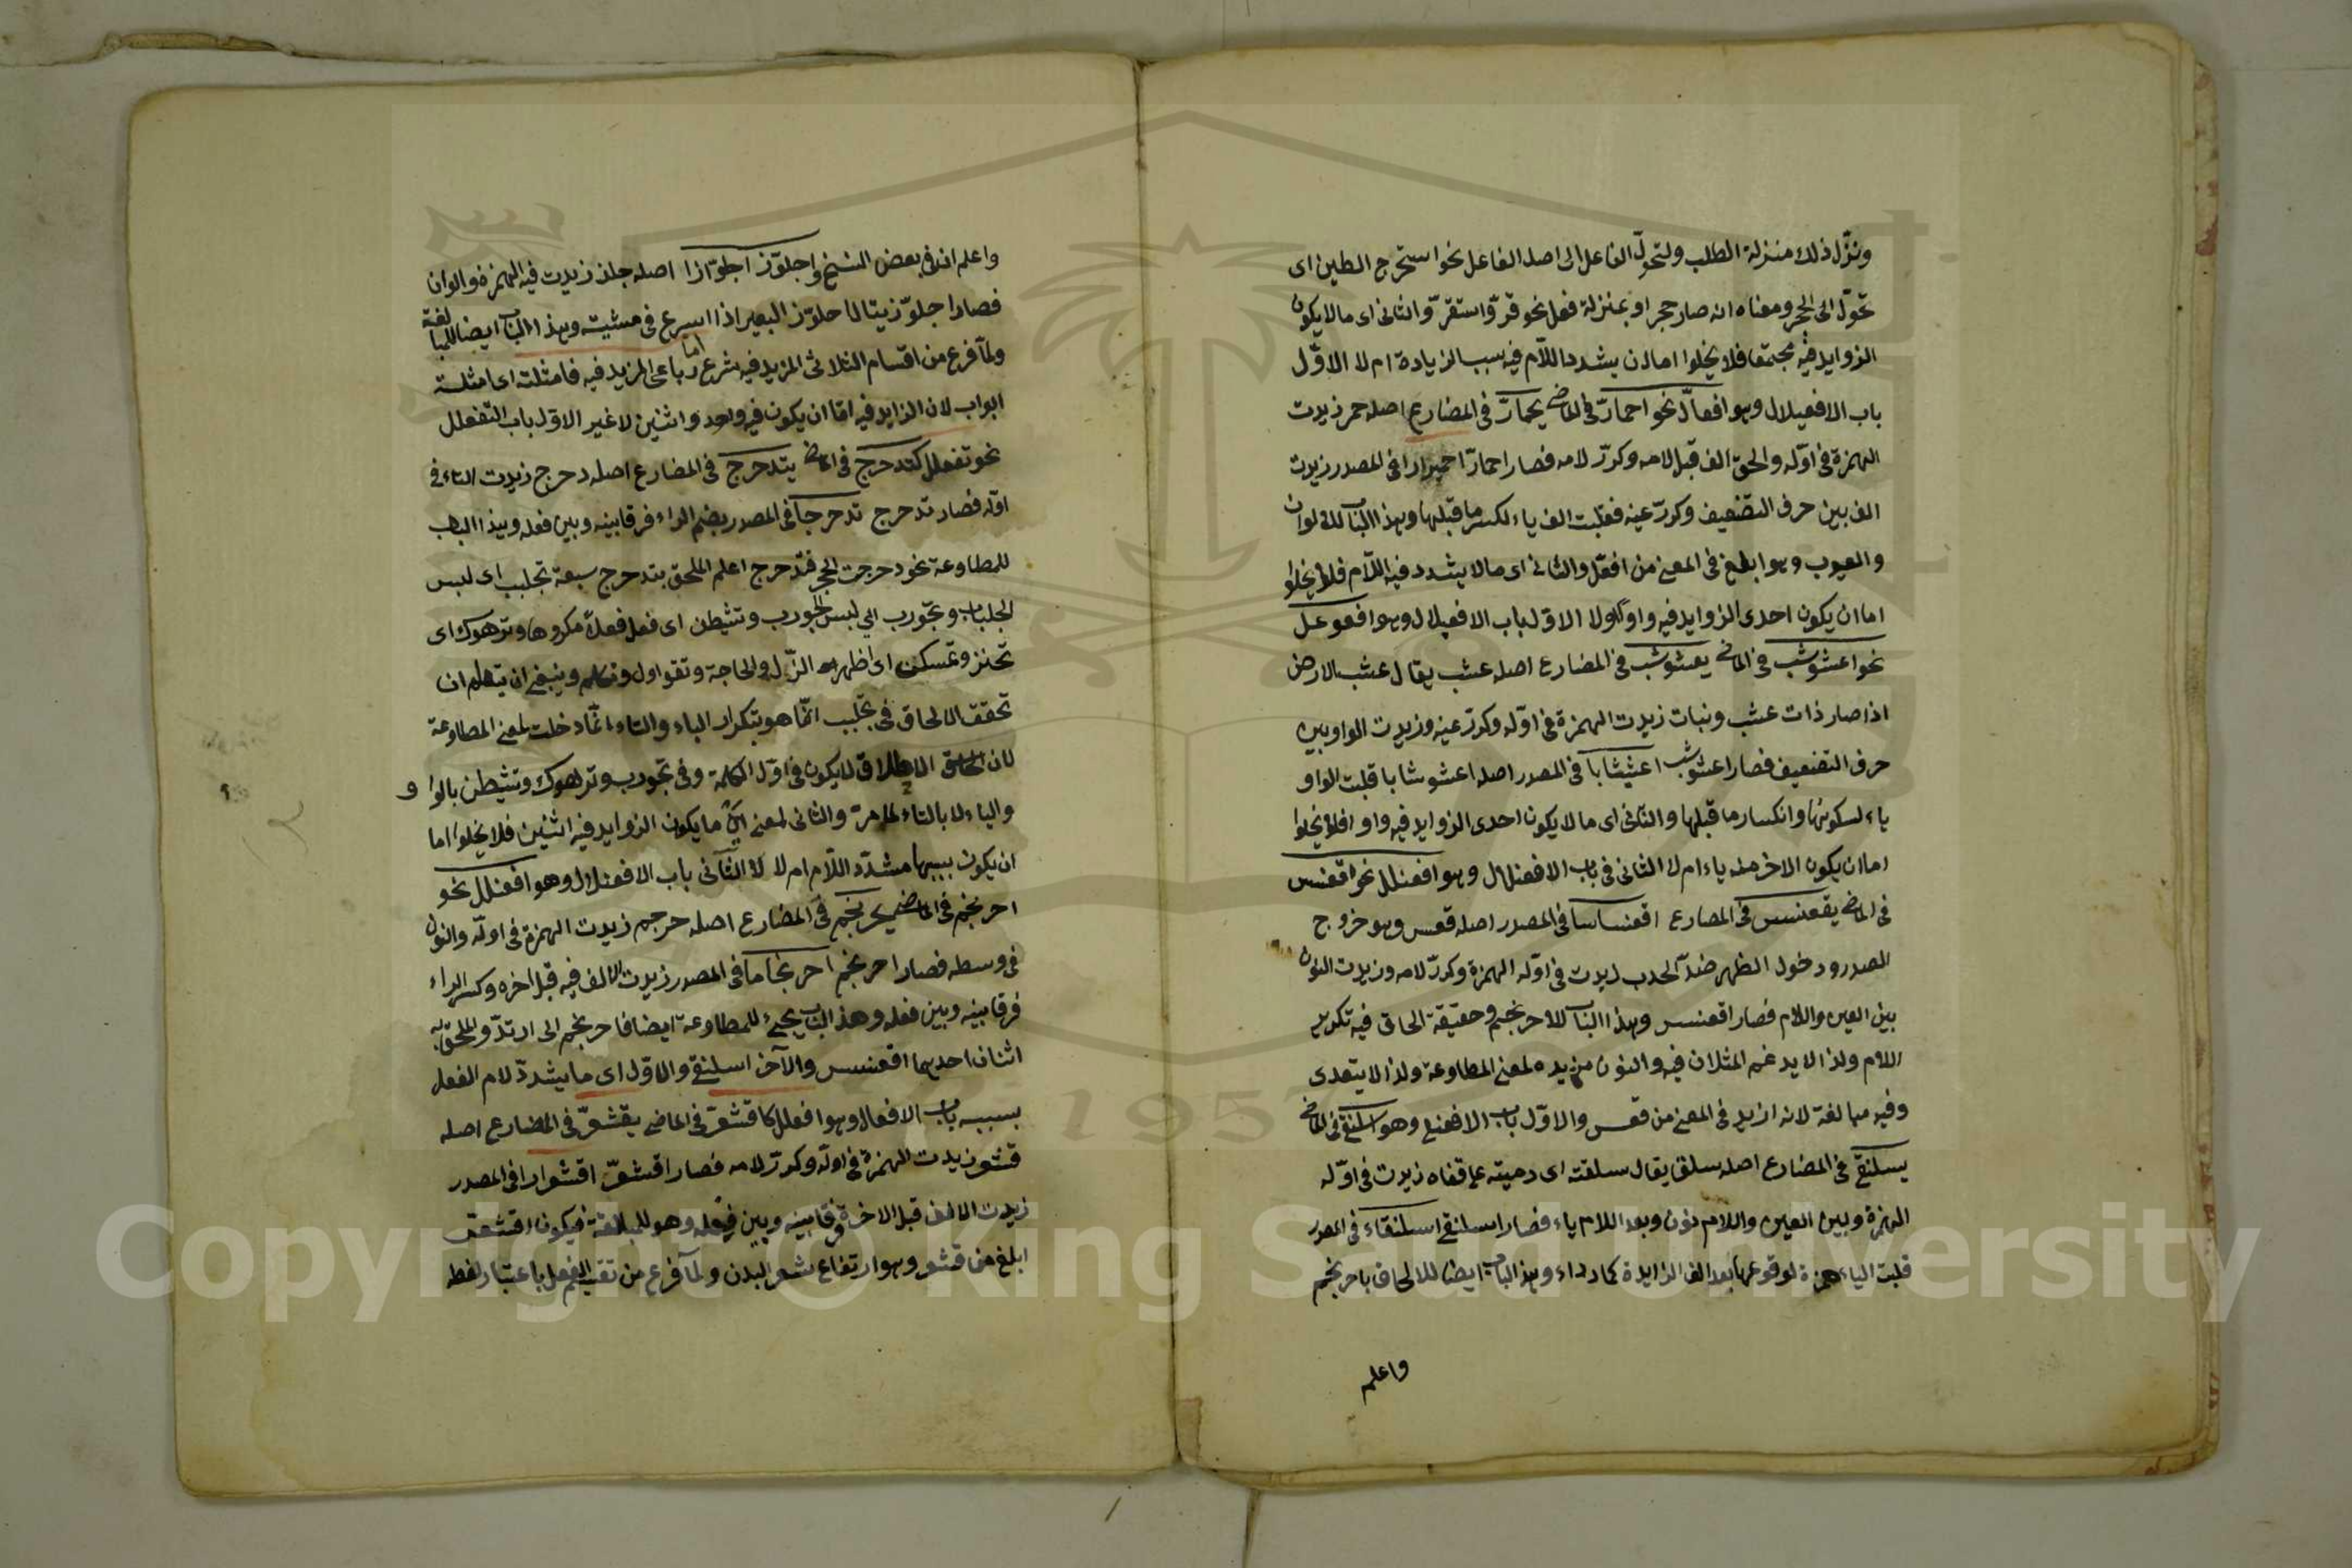 ونزّل ذلك منزلة الطلب ولتحوّل الفاعل الى اصل الفاعل نحو استخرج الطين اى
تحوّل الى الحجر ومعناه انه صار حجرا وبمنزلة فعل نحو قرّ واستقرّ والثانى اى ما لا يكون
الزوايد فيه مجتمعا فلا يخلوا اما ان يشدد اللام فيه بسبب الزيادة ام لا الاوّل
باب الافعيلال وهو افعالّ نحو احمارّ فى الماضى يحمارّ فى المضارع اصله حمر زيدت
الهمزة فى اوّله والحق الف قبل لامه وكرّر لامه فصار احمارّ احميرارا فى المصدر زيدت
الف بين حرف التضعيف وكرّر عينه فقلبت الف ياء لكسر ما قبلها وهذا الباب للالوان
والعيوب وهو ابلغ فى المعنى من افعلّ والثانى اى ما لا يشدد فيه اللام فلا يخلوا
اما ان يكون احدى الزوايد فيه واو اولا الاوّل باب الافعيلال وهو افعوعل
نحو اعشوشب فى الماضى يعشوشب فى المضارع اصله عشب يقال عشب الارض
اذا صار ذات عشب ونبات زيدت الهمزة فى اوّله وكرّر عينه وزيدت الواو بين
حرف التضعيف فصار اعشوشب اعشيشابا فى المصدر اصله اعشوشابا قلبت الواو
ياء لسكونها وانكسار ما قبلها والثانى اى ما لا يكون احدى الزوايد فيه واوا فلا يخلوا
اما ان يكون الاخر منه ياء ام لا الثانى فى باب الافعنلال وهو افعنلل نحو اقعنسس
فى الماضى يقعنسس فى المضارع اقعنساسا فى المصدر اصله قعس وهو خروج
الصدر ودخول الظهر ضدّ الحدب زيدت فى اوّله الهمزة وكرّر لامه وزيدت النون
بين العين واللام فصار اقعنسس وهذا الباب للاحرنجم وحقيقة الحاق فيه تكرير
اللام ولذا لا يدغم المثلان فيه والنون مزيده لمعنى المطاوعة ولذا لا يتعدى
وفيه مبالغة لانه ازيد فى المعنى من قعس والاوّل باب الافعنلى وهو اسلنقى فى الماضى
يسلنقى فى المضارع اصله سلق يقال سلقته اى رميته على قفاه زيدت فى اوّله
الهمزة وبين العين واللام نون وبعد اللام ياء فصار اسلنقى اسلنقاء فى المصدر
قلبت الياء همزة لوقوعها بعد الف الزايدة كما رداء وهذا الباب ايضا للالحاق باحرنجم
واعلم
واعلم ان فى بعض النسخ واجلوّز اجلوّازا اصله جلز زيدت فيه الهمزة والواوان
فصار اجلوّز يقال احلوّز البعير اذا اسرع فى مشيته وهذا الباب ايضا للمبالغة
ولمّا فرغ من اقسام الثلاثى المزيد فيه شرع رباعى المزيد فيه فامثلته اى امثلة
ابواب لان الزايد فيه امّا ان يكون فيه واحد واثنين لا غير الاوّل باب التفعلل
نحو تفعلل كتدحرج فى الماضى يتدحرج فى المضارع اصله دحرج زيدت التاء فى
اوّله فصار تدحرج تدحرجا فى المصدر بضم الراء فرقا بينه وبين فعله وهذا الباب
للمطاوعة نحو دحرجت الحجر فتدحرج اعلم الملحق بتدحرج سبعة تجلبب اى لبس
الجلباب وتجورب اى لبس الجورب وتشيطن اى فعل فعلا مكروها وترهوك اى
تخنز وتمسكن اى اظهر الذل والحاجة وتقواول وتكلم وينبغى ان يعلم ان
تحقق الالحاق فى تجلبب انّما هو بتكرار الباء والتاء انّما دخلت لمعنى المطاوعة
لان الالحاق لا يكون فى اوّل الكلمة وفى تجورب وترهوك وتشيطن بالواو
والياء لا بالتاء لما مرّ والثانى لمعنى اى ما يكون الزوايد فيه اثنين فلا يخلوا اما
ان يكون بسببها مشدّد اللام ام لا الثّانى باب الافعنلال وهو افعنلل نحو
احرنجم فى الماضى يحرنجم فى المضارع اصله حرجم زيدت الهمزة فى اوّله والنون
فى وسطه فصار احرنجم احرنجاما فى المصدر زيدت الالف فيه قبل اخره وكسر الراء
فرقا بينه وبين فعله وهذا الباب يجئ للمطاوعة ايضا فاحرنجم الى ارتدّ والملحق به
اثنان احديهما اقعنسس والآخر اسلنقى والاوّل اى ما يشدّد لام الفعل
بسببه باب الافعلال وهو افعلل كاقشعرّ فى الماضى يقشعرّ فى المضارع اصله
قشعر زيدت الهمزة فى اوّله وكرّر لامه فصار اقشعرّ اقشعرارا فى المصدر
زيدت الالف قبل الاخر فرقا بينه وبين فعله وهو للمبالغة فيكون اقشعرّ
ابلغ من قشعر وهو ارتفاع شعر البدن ولمّا فرغ من تقسيم الفعل باعتبار لفظه
Copyright © King Saud University
1957